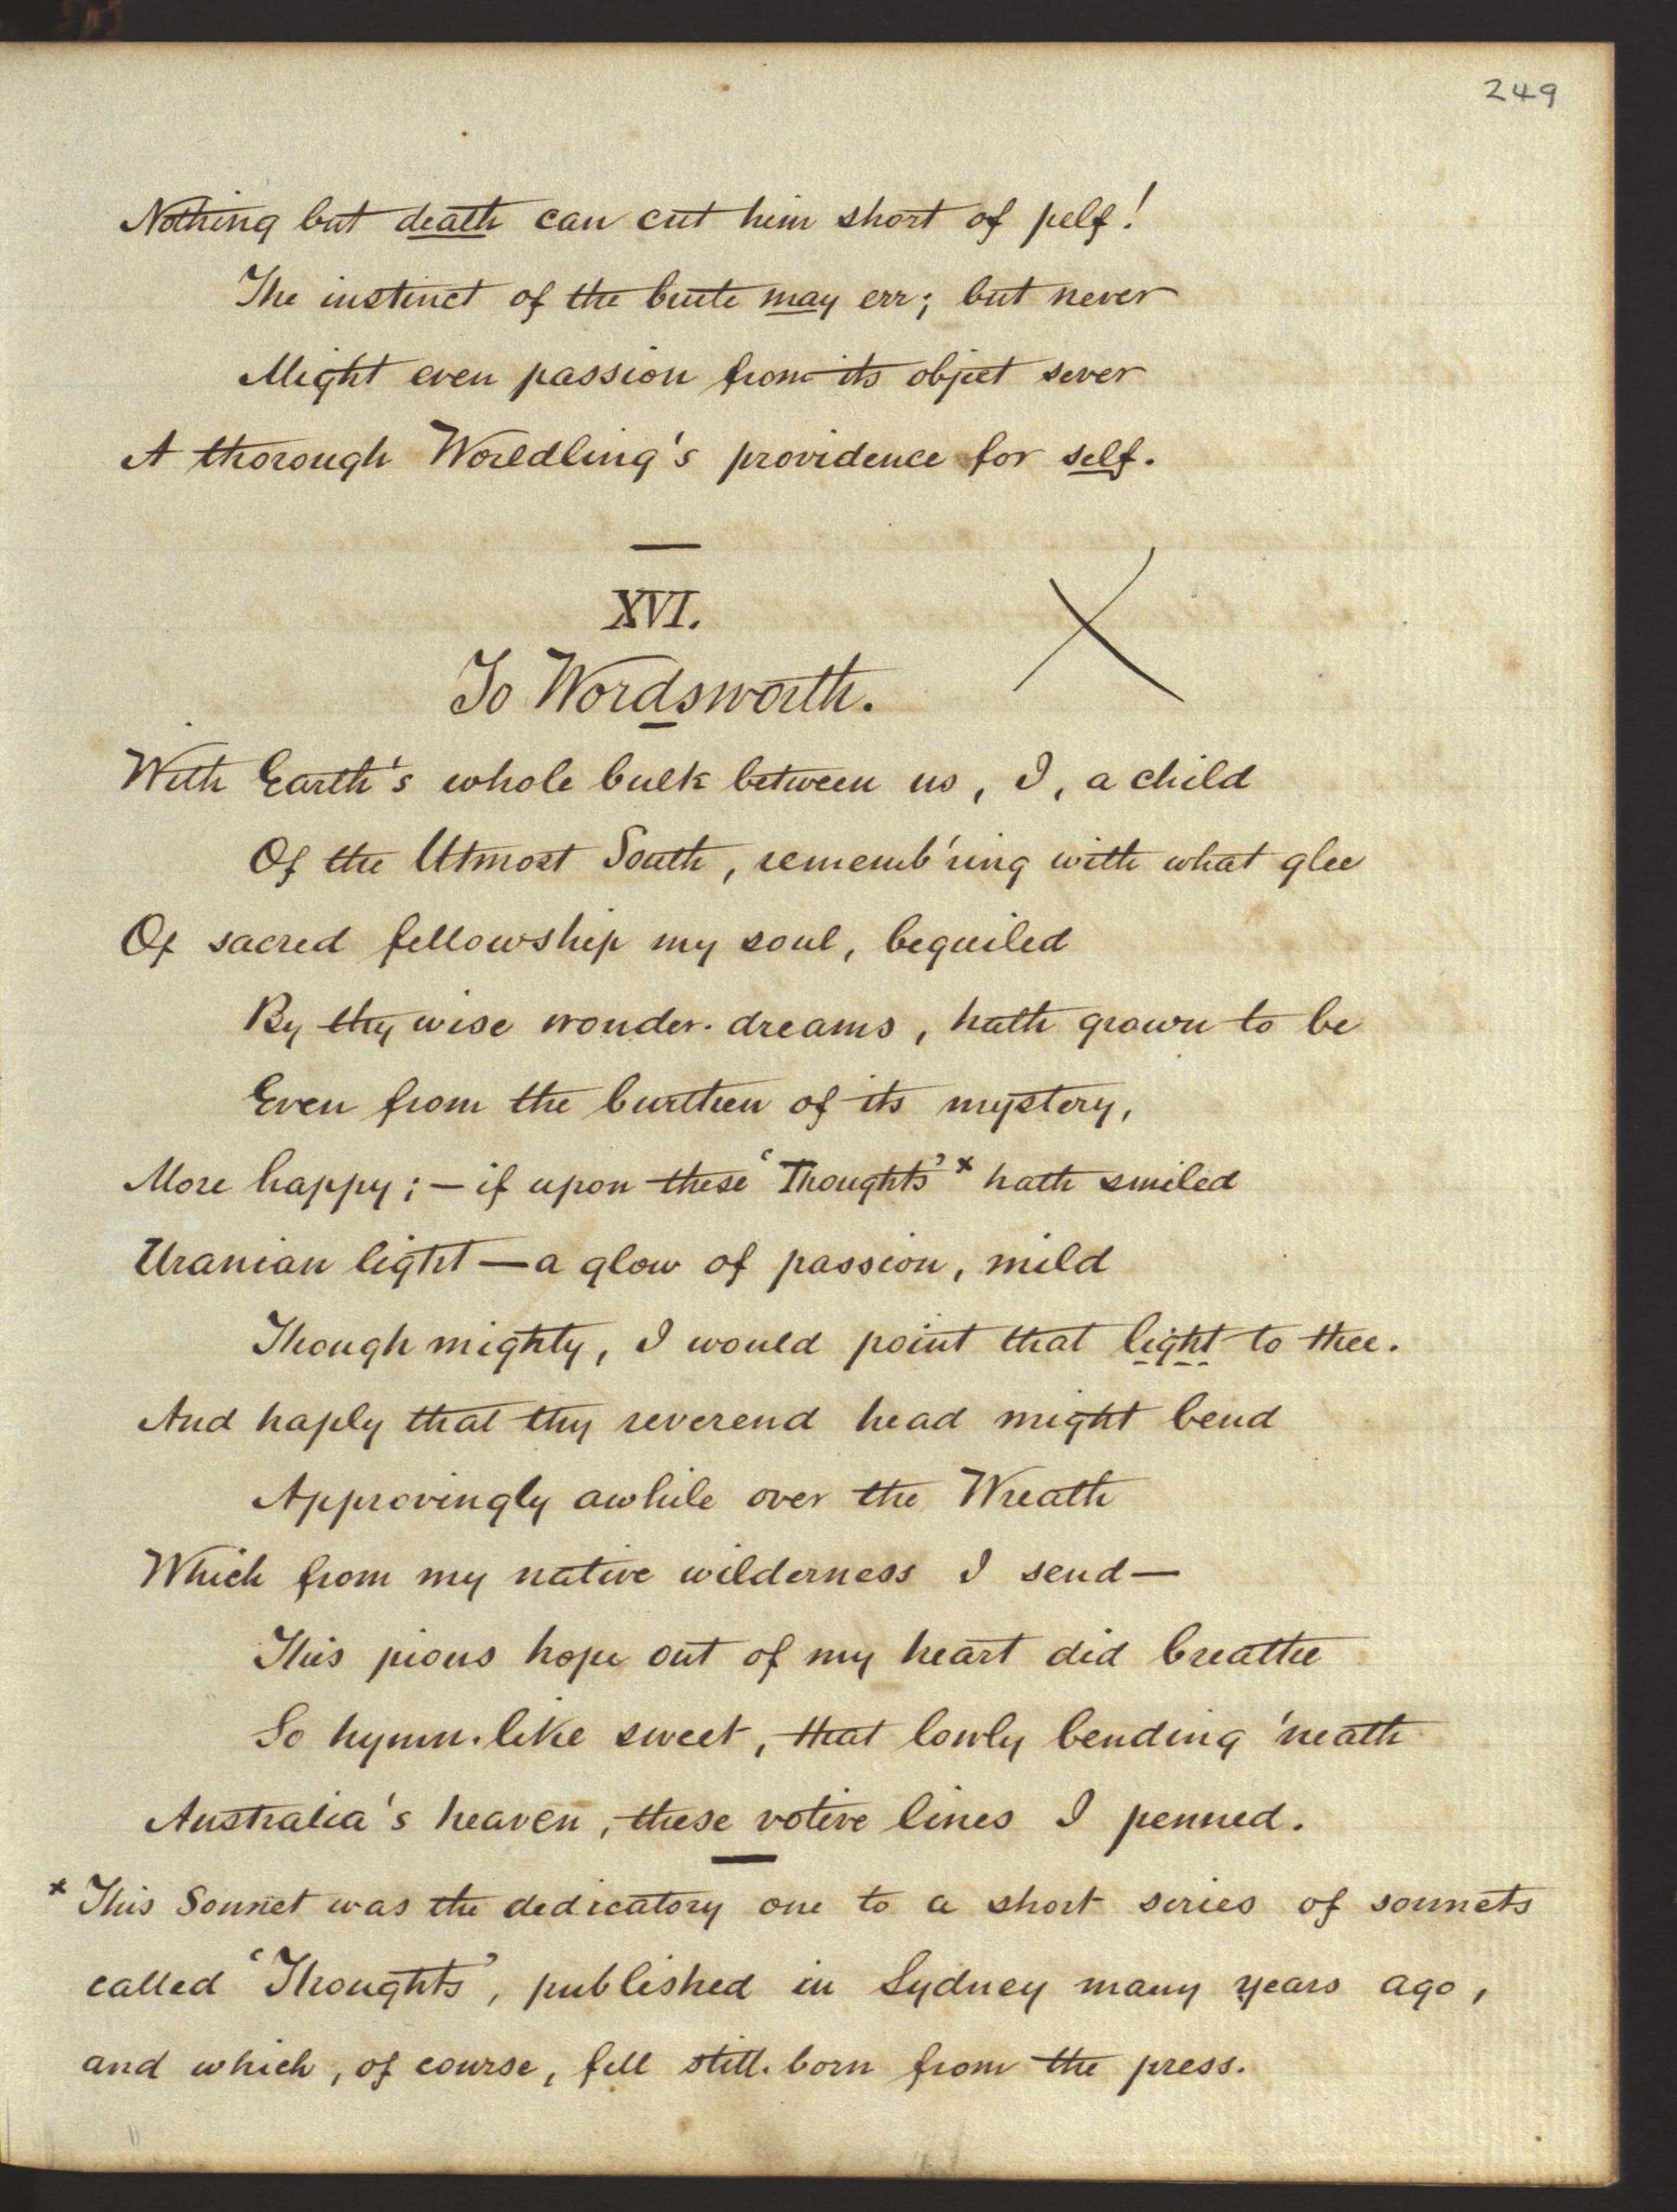 249
Nothing but death can cut him short of pelf!
The instinct of the brute may err; but never
Might even passion from its object sever
A thorough Worldling's providence for self.
XVI.
To Wordsworth.
With Earth's whole bulk between us, I, a child
Of the Utmost South, rememb'ring with what glee
Of sacred fellowship my soul, beguiled
By thy wise wonder-dreams, hath grown to be
Even from the burthen of its mystery,
More happy; — if upon these 'Thoughts' x hath smiled
Uranian light — a glow of passion, mild
Though mighty, I would point that light to thee.
And haply that thy reverend head might bend
Approvingly awhile over the Wreath
Which from my native wilderness I send —
This pious hope out of my heart did breathe
So hymn-like sweet, that lowly bending 'neath
Australia's heaven, these votive lines I penned.
x This Sonnet was the dedicatory one to a short series of sonnets
called 'Thoughts', published in Sydney many years ago,
and which, of course, fell still-born from the press.